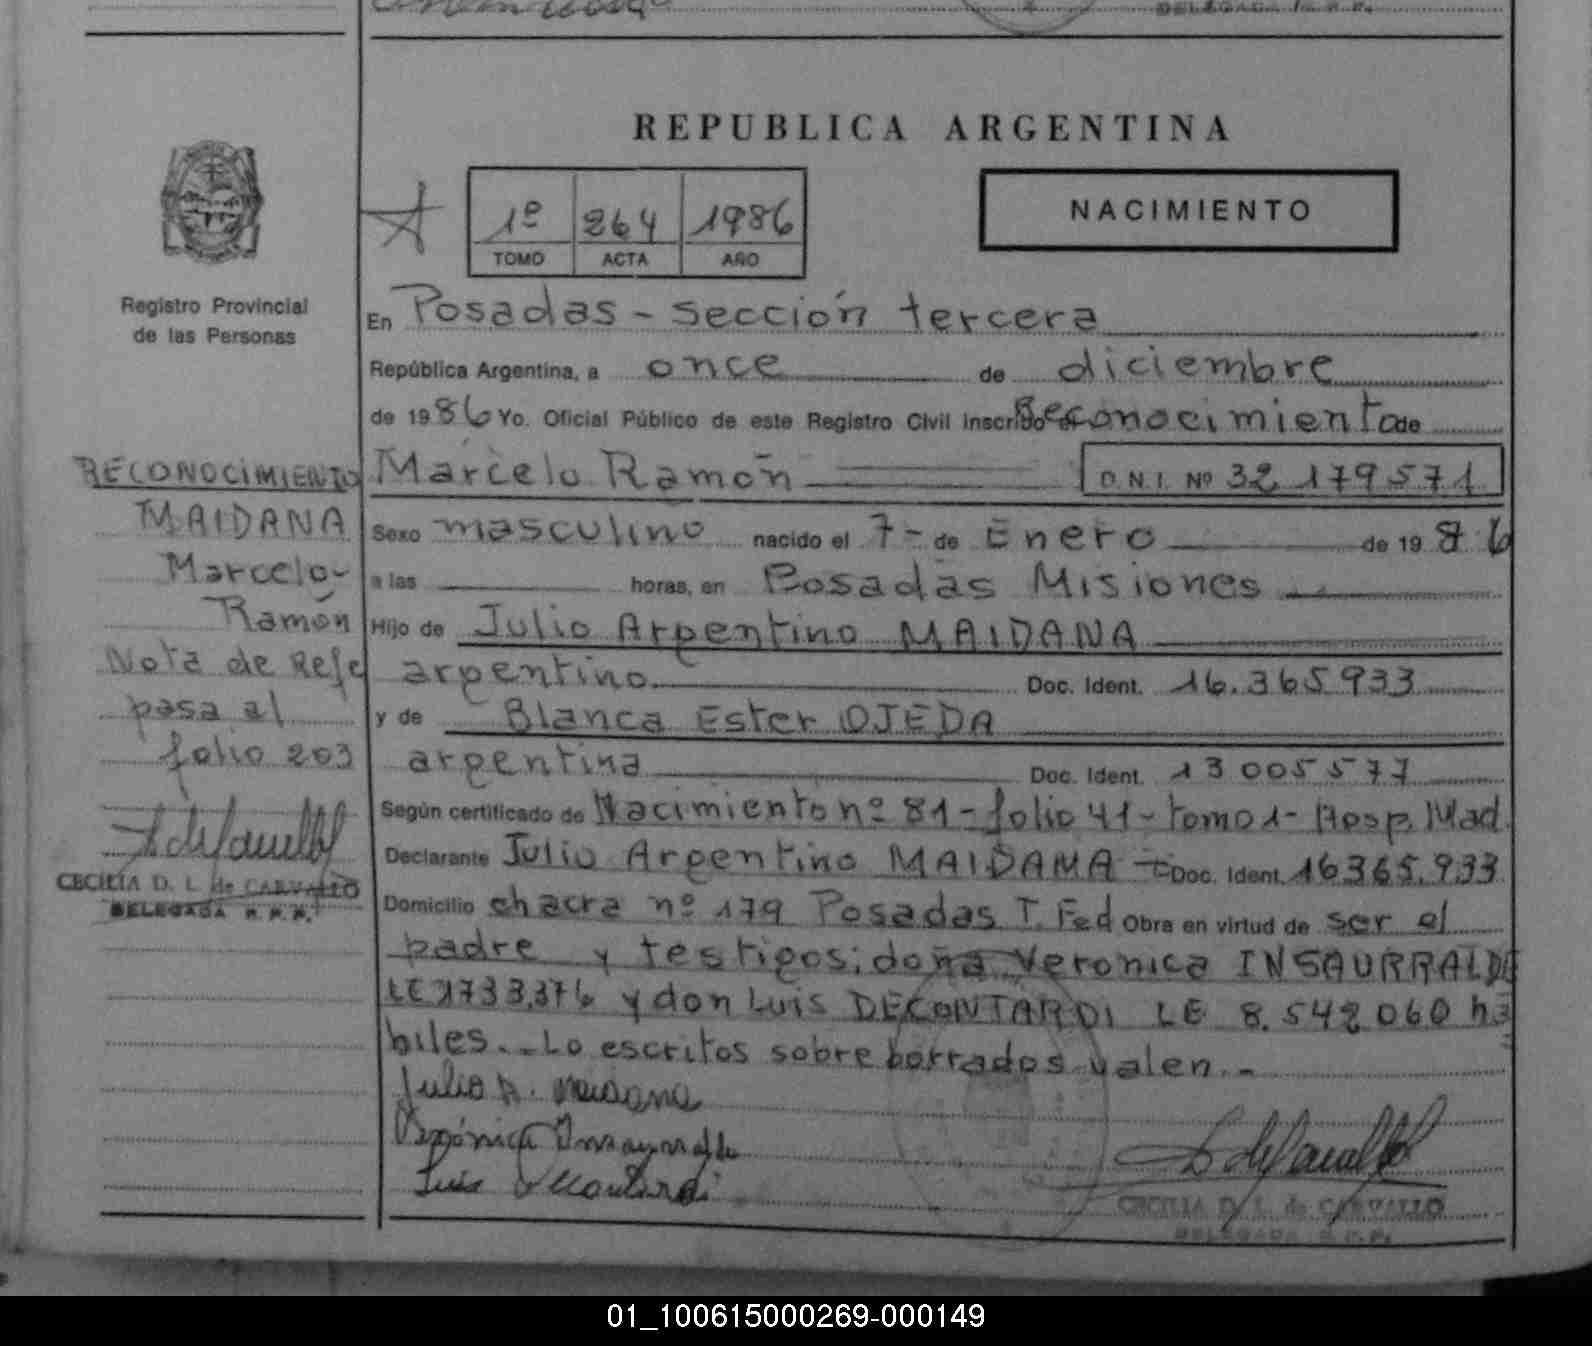 REPUBLICA ARGENTINA
1º 264 1986
TOMO ACTA AÑO
NACIMIENTO
Registro Provincial
de las Personas
En Posadas - sección tercera
República Argentina, a once de diciembre
de 1986 Yo. Oficial Público de este Registro Civil inscribo Reconocimiento de
Marcelo Ramón D.N.I. Nº 32 179571
Sexo masculino nacido el 7 - de Enero de 1986
a las horas, en Posadas Misiones
Hijo de Julio Argentino MAIDANA
argentino Doc. Ident. 16.365933
y de Blanca Ester OJEDA
argentina Doc. Ident. 13005577
Según certificado de Nacimiento nº 81 - folio 41 - tomo 1 - Hosp. Mad.
Declarante Julio Argentino MAIDANA - Doc. Ident. 16365.933
Domicilio chacra nº 179 Posadas T. Fed Obra en virtud de ser el
padre y testigos; doña Veronica INSAURRALDE
LE 1733.376 y don Luis DECONTARDI LE 8.542060 há
biles. - Lo escritos sobre borrados valen. -
Julio A. Maidana
Verónica Insaurralde
Luis Decontardi
CECILIA D. L. de CARVALLO
DELEGADA R.P.P.
RECONOCIMIENTO
MAIDANA
Marcelo-
Ramón
Nota de Refe
pasa al
folio 203
CECILIA D. L. de CARVALLO
DELEGADA R.P.P.
01_100615000269-000149